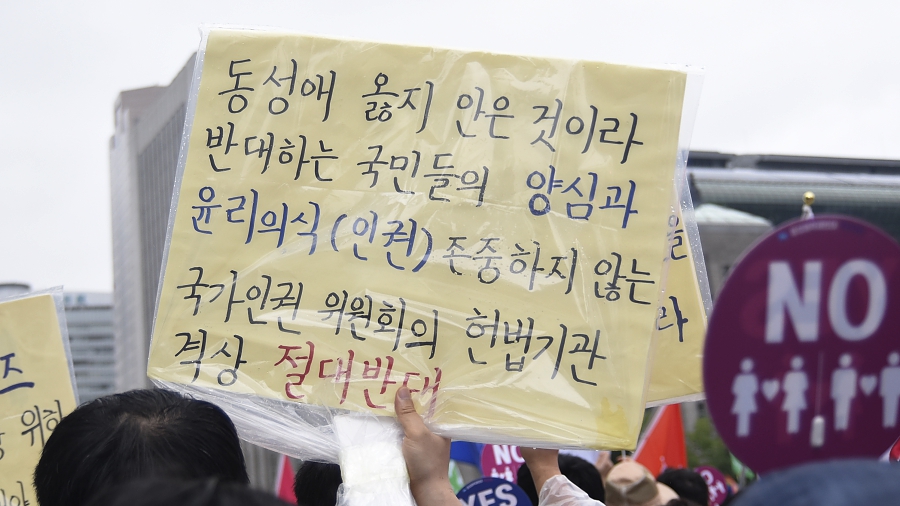 동성애 옳지 안은 것이라
반대하는 국민들의 양심과
윤리의식(인권) 존중하지 않는
국가인권 위원회의 헌법기관
격상 절대반대
NO
NO
YES
위하